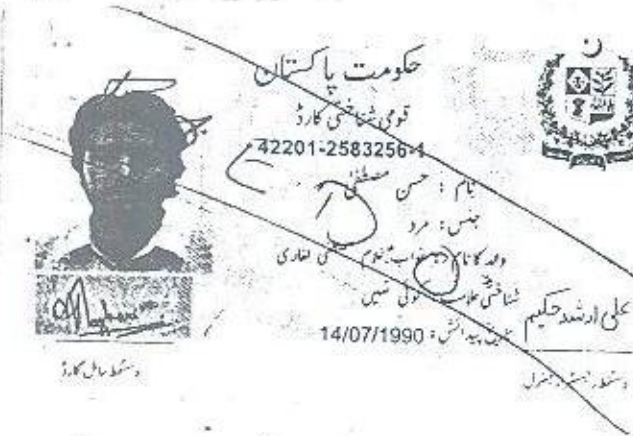 حکومت پاکستان
قومی شناختی کارڈ
42201-2583256-1
نام : حسن مصطفیٰ
جنس : مرد
ولد کا نام : نواب غلام لغاری
شناختی علامت : کوئی نہیں
تاریخ پیدائش : 14/07/1990
علی ارشد حکیم
دستخط حامل کارڈ
دستخط رجسٹرار جنرل